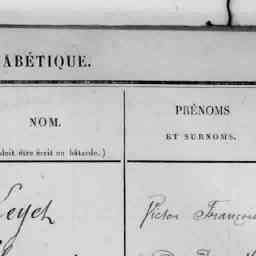 ABÉTIQUE.
NOM.
PRÉNOMS
ET SURNOMS.
doit être écrit en bâtarde.)
Leych
Victor François